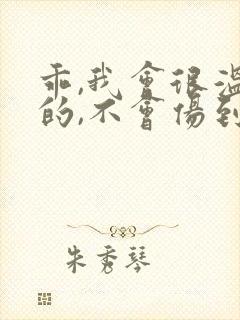 乖,我會很溫
的,不會傷到
朱秀琴